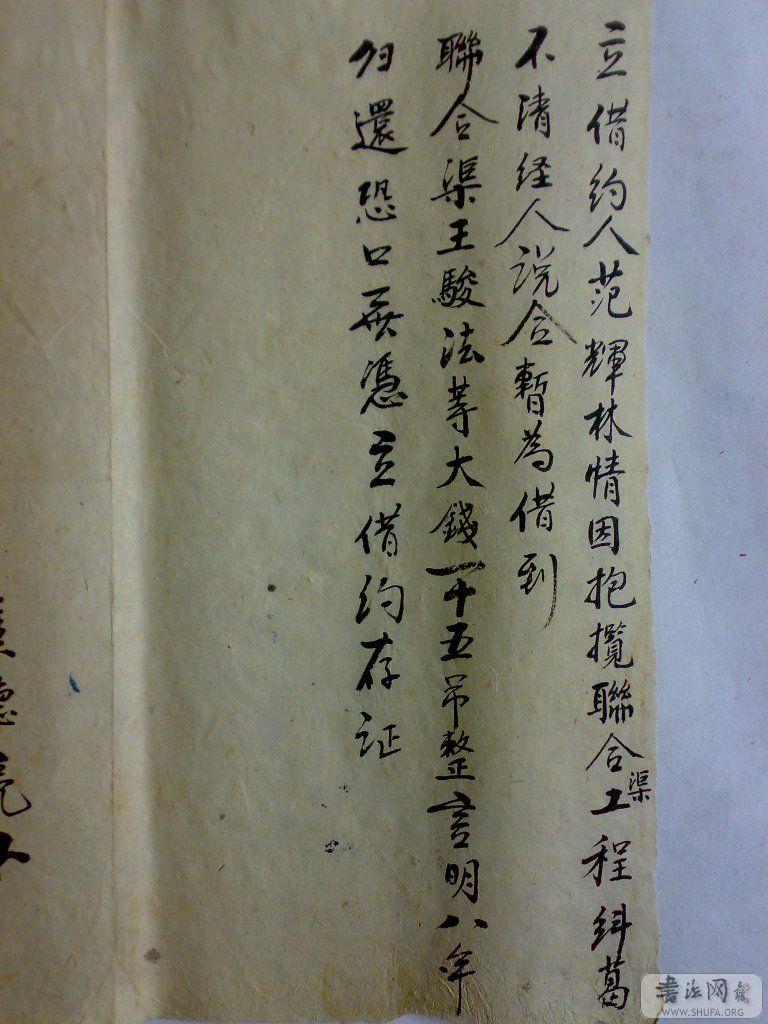 立借约人范輝林情因抱攬聯合渠工程纠葛
不清経人说合暫為借到
聯合渠王駿法等大錢一十五吊整言明八年
归還恐口無憑立借约存证
書法网
WWW.SHUFA.ORG